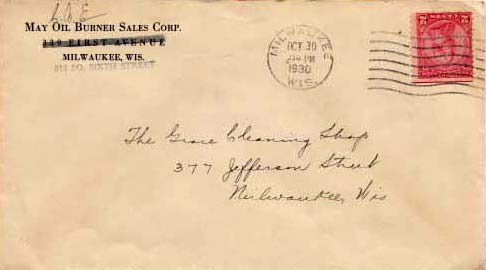 MAY OIL BURNER SALES CORP.
239 FIRST AVENUE
MILWAUKEE, WIS.
813 SO. SIXTH STREET
MILWAUKEE
OCT 30
PM
1930
WIS.
The Grace Cleaning Shop
377 Jefferson Street
Milwaukee, Wis